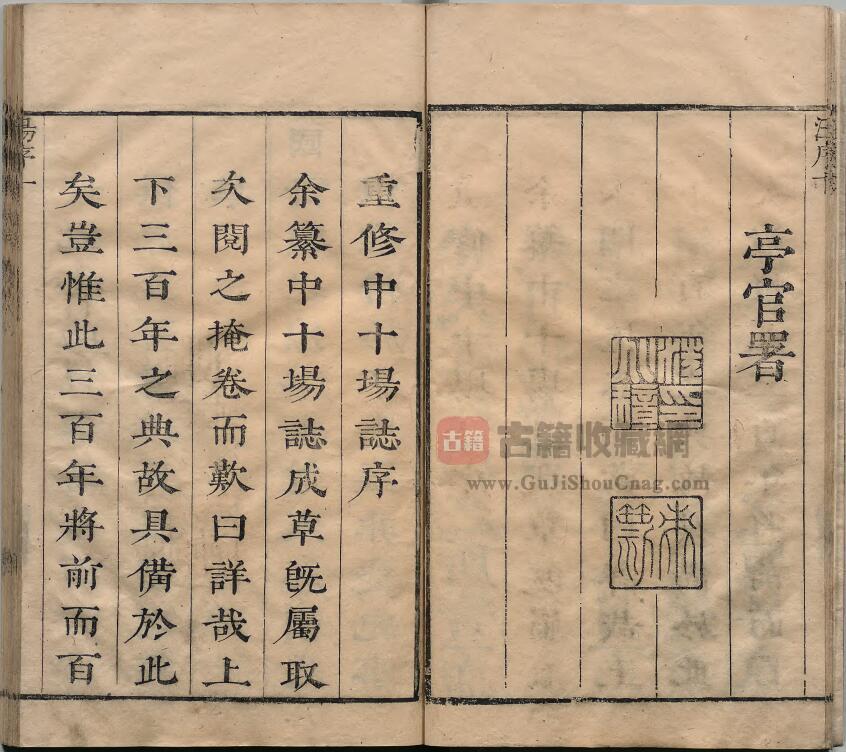 亭官署
重修中十場誌序
余纂中十場誌成草既屬取
次閱之掩卷而歎曰詳哉上
下三百年之典故具備於此
矣豈惟此三百年將前而百
古籍
古籍收藏網
www.GuJiShouCnag.com